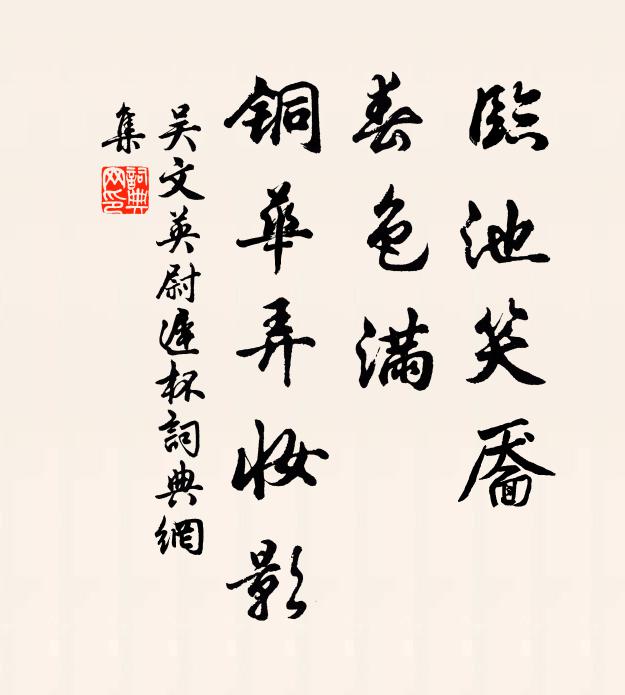 臨池笑靨
春色滿
銅華弄妝影
吳文英尉遲杯詞典網
集
詞典網印